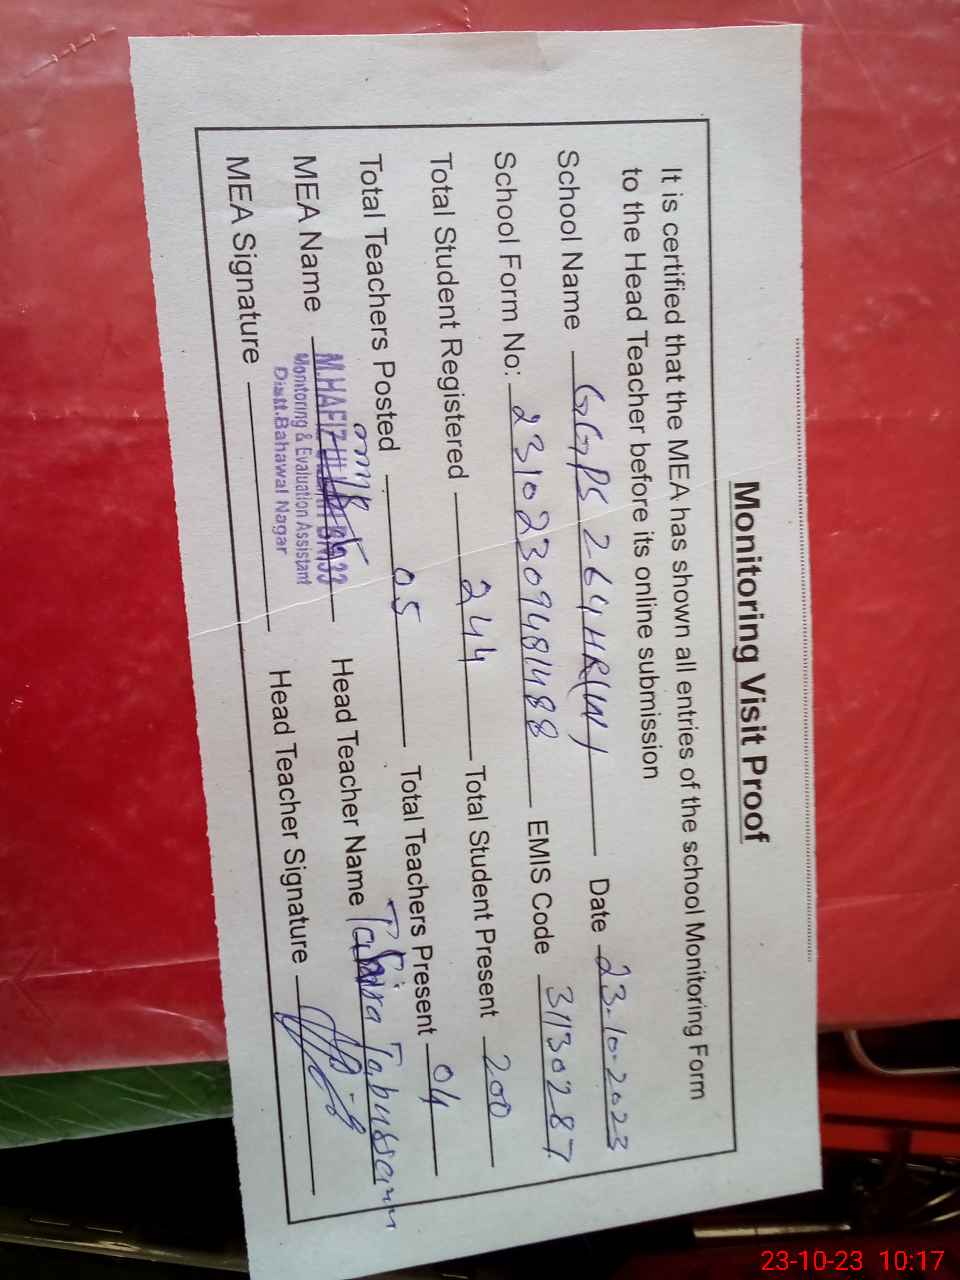 Monitoring Visit Proof
It is certified that the MEA has shown all entries of the school Monitoring Form
to the Head Teacher before its online submission
School Name GGPS 264HR(W) Date 23-10-2023
School Form No: 23102309481488 EMIS Code 31130287
Total Student Registered 244 Total Student Present 200
Total Teachers Posted 05 Total Teachers Present 04
MEA Name M.HAFIZ Head Teacher Name Tahira Tabussam
Monitoring & Evaluation Assistant
Distt.Bahawal Nagar
MEA Signature Head Teacher Signature
23-10-23 10:17